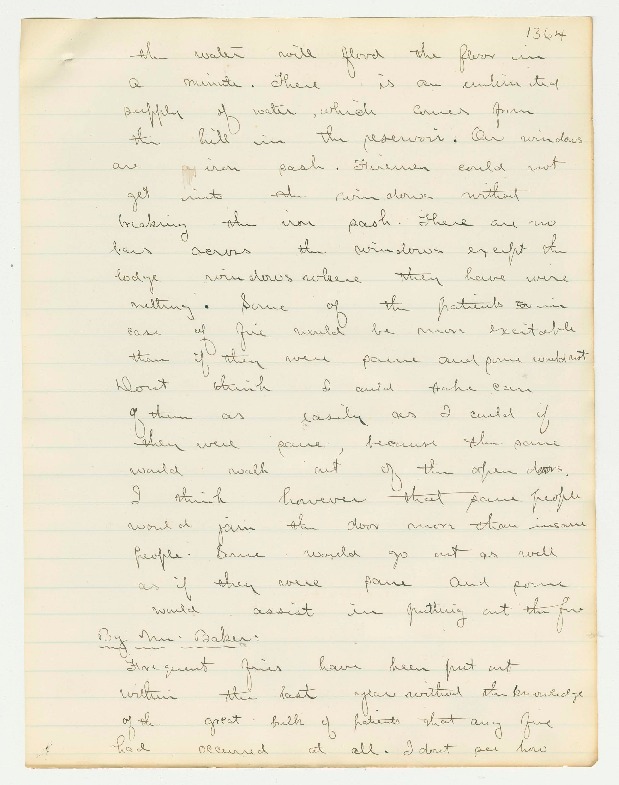 1364
the water will flood the floor in
a minute. There is an unlimited
supply of water, which comes from
the hill in the reservoir. Our windows
are iron sash. Firemen could not
get into the windows without
breaking the iron sash. There are no
bars across the windows except the
lodge windows where they have wire
netting. Some of the patients in
case of fire would be more excitable
than if they were sane and some would not
Dont think I could take care
of them as easily as I could if
they were sane, because the sane
would walk out of the open doors.
I think however that sane people
would jam the door more than insane
people. Some would go out as well
as if they were sane and some
would assist in putting out the fire
By Mr. Baker:
Frequent fires have been put out
within the last year without the knowledge
of the great bulk of patients that any fire
had occurred at all. I dont see how